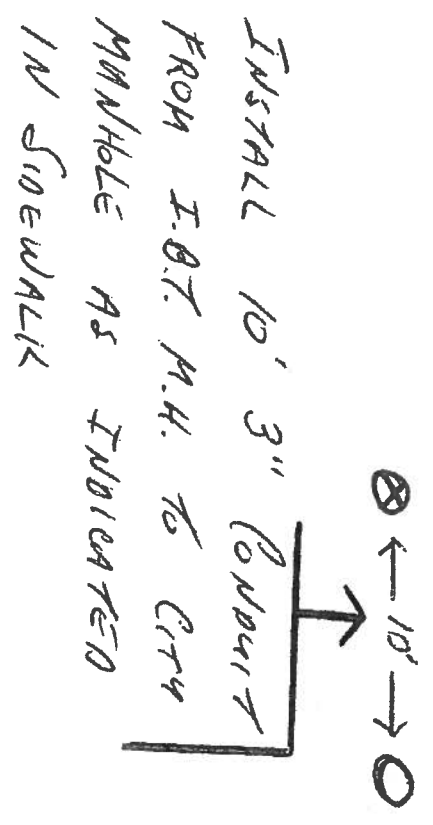 10'
INSTALL 10' 3" CONDUIT
FROM I.B.T. M.H. TO CITY
MANHOLE AS INDICATED
IN SIDEWALK